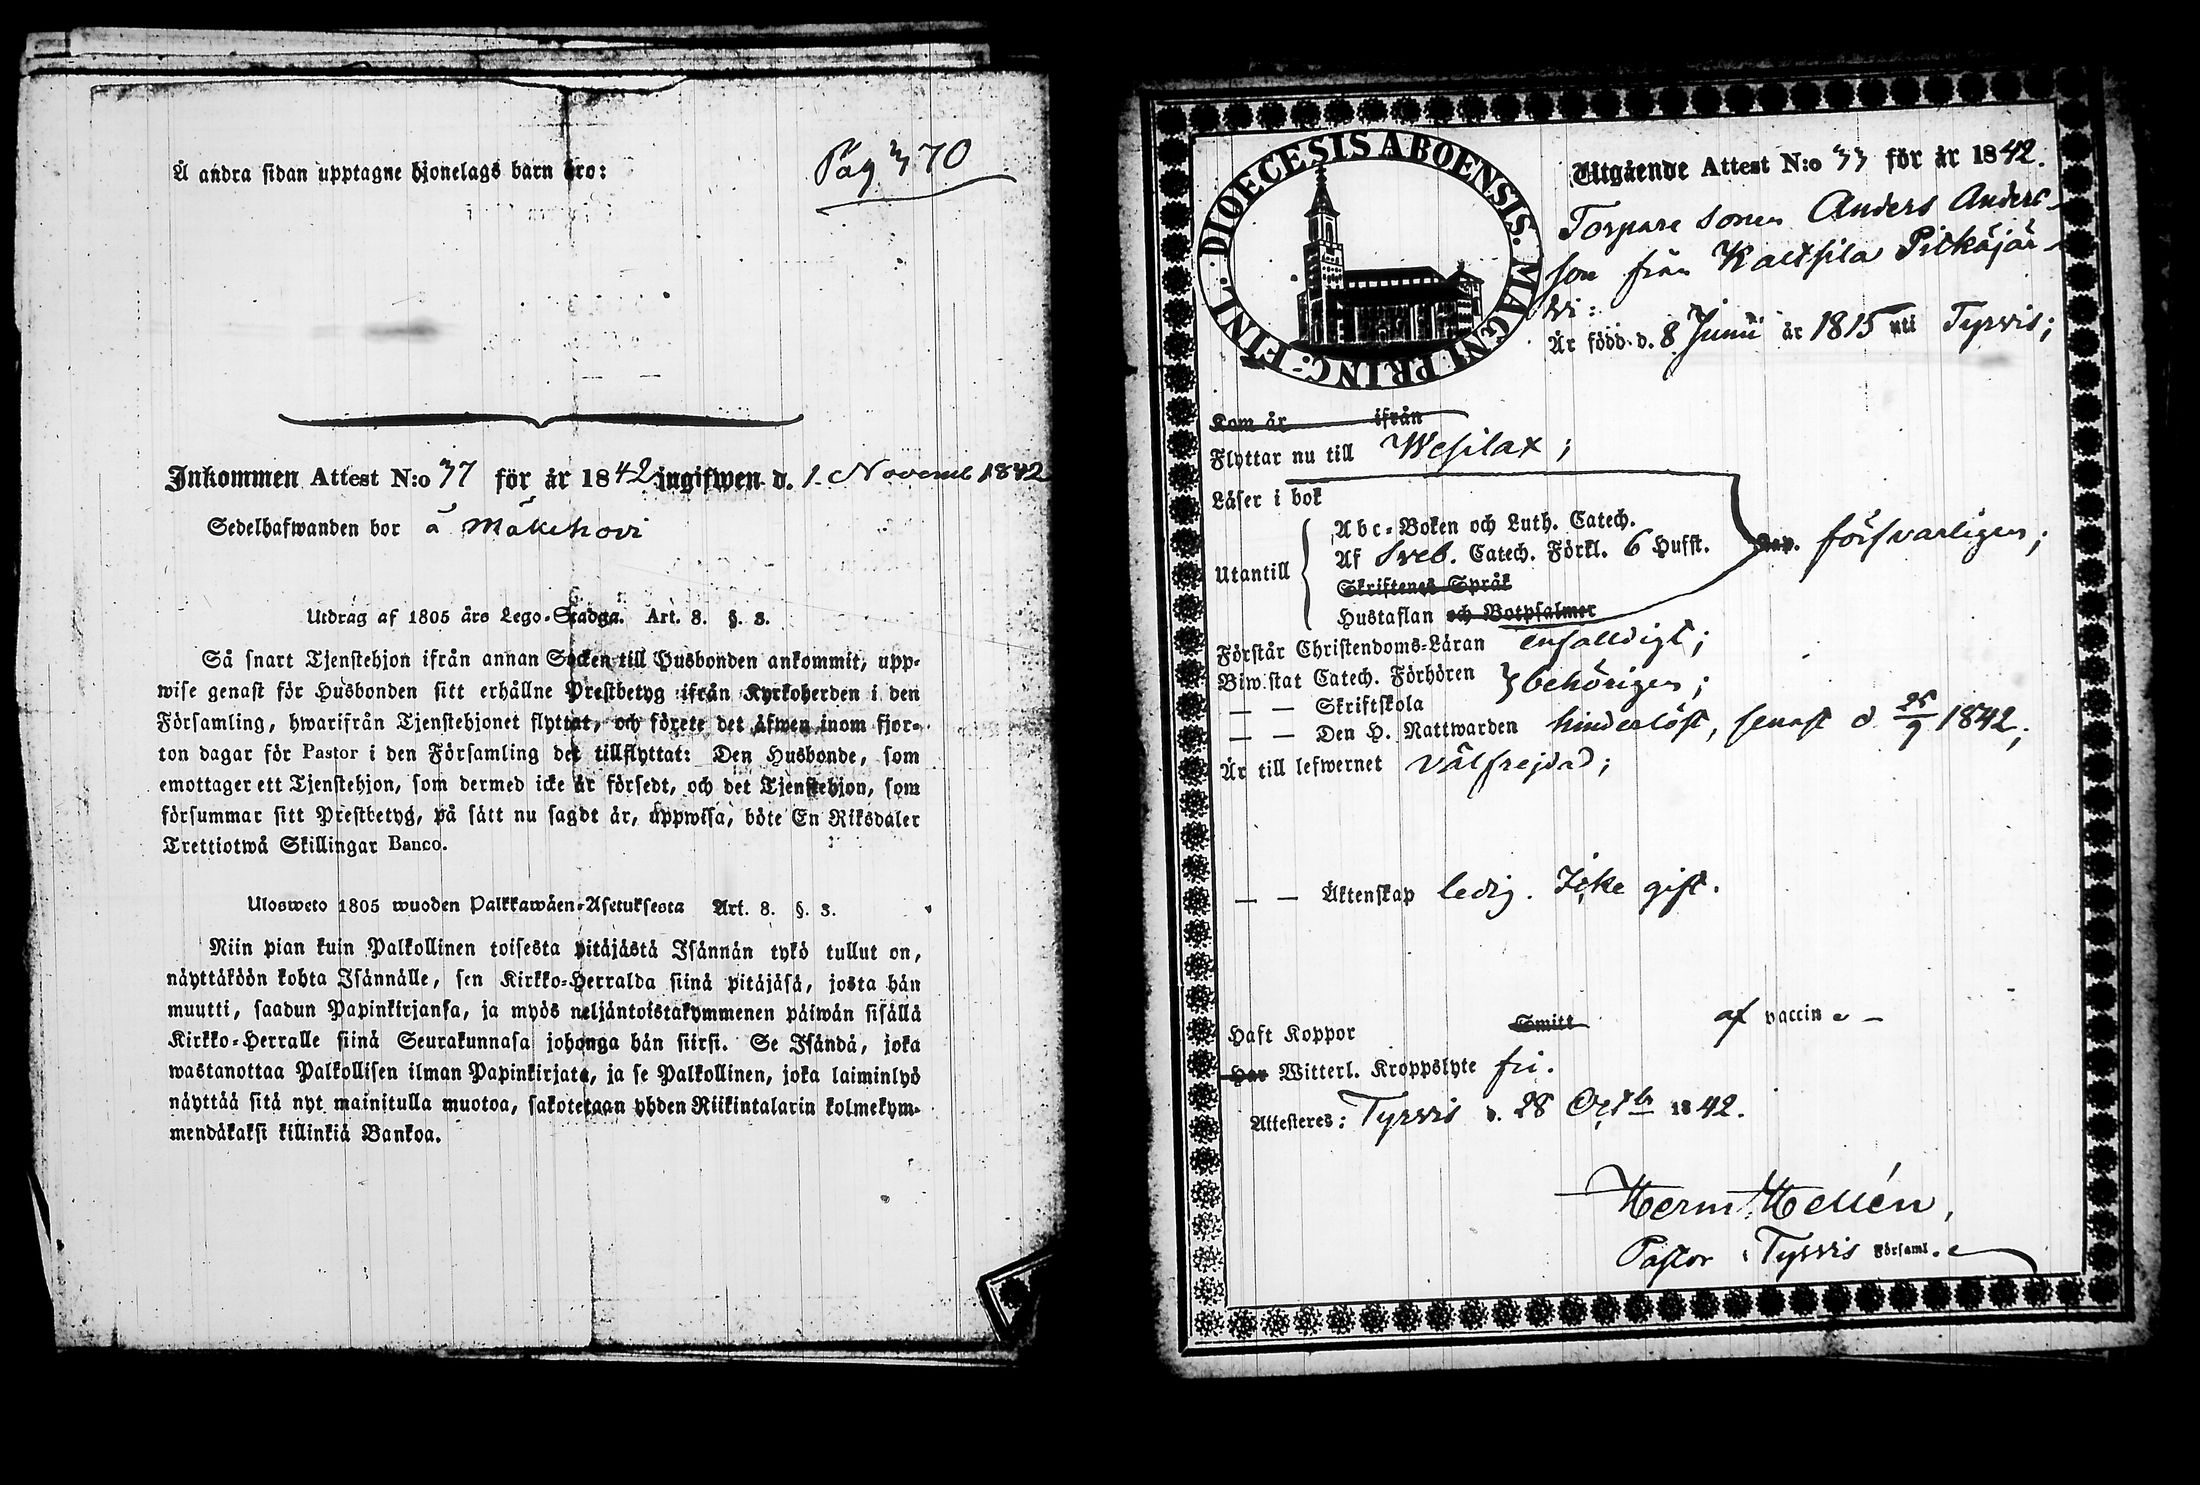 Å andra sidan upptagne hjonelags barn äro:
Pag 370
Inkommen Attest N:o 37 för år 1842 ingifwen d. 1. Novemb 1842
Sedelhafwanden bor å Mäkehovi
Utdrag af 1805 års Lego-Stadga. Art. 8. §. 3.
Så snart Tjenstehjon ifrån annan Socken till Husbonden ankommit, upp-
wise genast för Husbonden sitt erhållne Prestbetyg ifrån Kyrkoherden i den
Församling, hwarifrån Tjenstehjonet flyttat, och förete det äfwen inom fjor-
ton dagar för Pastor i den Församling det tillflyttat: Den Husbonde, som
emottager ett Tjenstehjon, som dermed icke är försedt, och det Tjenstehjon, som
försummar sitt Prestbetyg, på sätt nu sagdt är, uppwisa, böte En Riksdaler
Trettiotwå Skillingar Banco.
Ulosweto 1805 wuoden Palkkawäen-Asetuksesta Art. 8. §. 3.
Niin pian kuin Palkollinen toisesta pitäjästä Isännän tykö tullut on,
näyttäköön kohta Isännälle, sen Kirkko-Herralda siinä pitäjäsä, josta hän
muutti, saadun Papinkirjansa, ja myös neljäntoistakymmenen päiwän sisällä
Kirkko-Herralle siinä Seurakunnasa johonga hän siirsi. Se Isändä, joka
wastanottaa Palkollisen ilman Papinkirjata, ja se Palkollinen, joka laiminlyö
näyttää sitä nyt mainitulla muotoa, sakotetaan yhden Riikintalarin kolmekym-
mendäkaksi killinkiä Bankoa.
DIOECESIS ABOENSIS. MAGNI PRINC: FINL.
Utgående Attest N:o 33 för år 1842.
Torpare sonen Anders Anders-
son från Kaltsila Pitkäjär-
wi:
Är född d. 8 Junii år 1815 uti Tyrvis;
Kom år ifrån
Flyttar nu till Wesilax;
Läser i bok
Abc-Boken och Luth. Catech.
Utantill Af Sveb. Catech. Förkl. 6 Hufst. försvarligen;
Skriftenes Språk
Hustaflan och Botpsalmer
Förstår Christendoms-Läran enfalldigt;
Biwistat Catech. Förhören behörigen;
— — Skriftskola
— — Den H. Nattwarden hinderlöst, senast d 25/9 1842;
Är till lefwernet välfrejdad;
— — Äktenskap ledig. Icke gift.
Haft Koppor Smitt af vaccine —
Har Witterl. Kroppslyte fri.
Attesteres: Tyrvis d. 28 Octbr 1842.
Herm. Hellén,
Pastor i Tyrvis Församl.